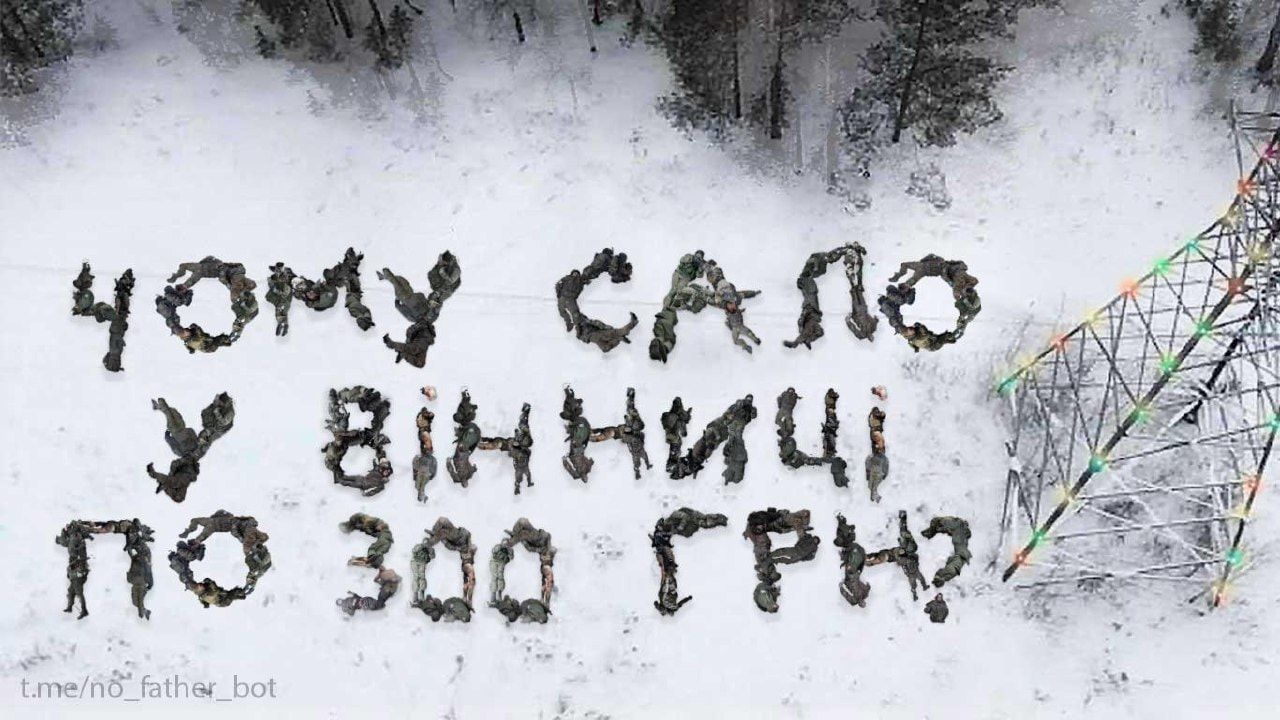 ЧОМУ САЛО
У ВІННИЦІ
ПО 300 ГРН?
t.me/no_father_bot